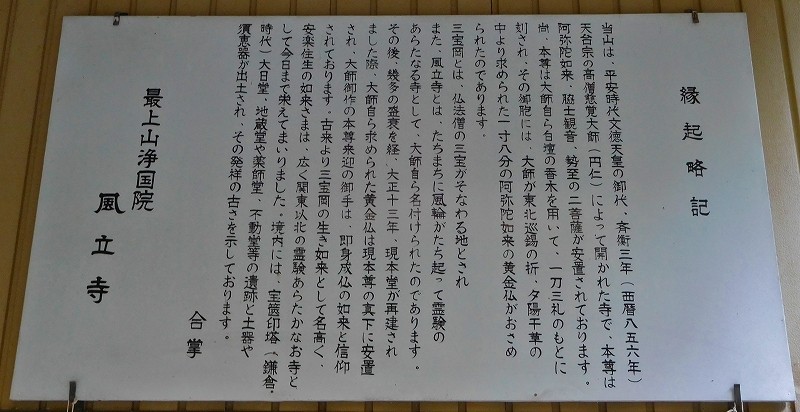 縁起略記
当山は、平安時代文徳天皇の御代、斉衡三年（西暦八五六年）
天台宗の高僧慈覚大師（円仁）によって開かれた寺で、本尊は
阿弥陀如来、脇士観音、勢至の二菩薩が安置されております。
尚、本尊は大師自ら白壇の香木を用いて、一刀三礼のもとに
刻され、その御胎には、大師が東北巡錫の折、夕陽干草の
中より求められた一寸八分の阿弥陀如来の黄金仏がおさめ
られたのであります。
三宝岡とは、仏法僧の三宝がそなわる地とされ
また、風立寺とは、たちまちに風輪がたち起って霊験の
あらたなる寺として、大師自ら名付けられたのであります。
その後、幾多の盛衰を経、大正十三年、現本堂が再建され
ました際、大師自ら求められた黄金仏は現本尊の真下に安置
され、大師御作の本尊来迎の御手は、即身成仏の如来と信仰
されております。古来より三宝岡の生き如来として名高く、
安楽住生の如来さまは、広く関東以北の霊験あらたかなお寺と
して今日まで栄えてまいりました。境内には、宝篋印塔（鎌倉・
時代）大日堂、地蔵堂や薬師堂、不動堂等の遺跡と土器や
須恵器が出土され、その発祥の古さを示しております。
合掌
最上山浄国院
風立寺